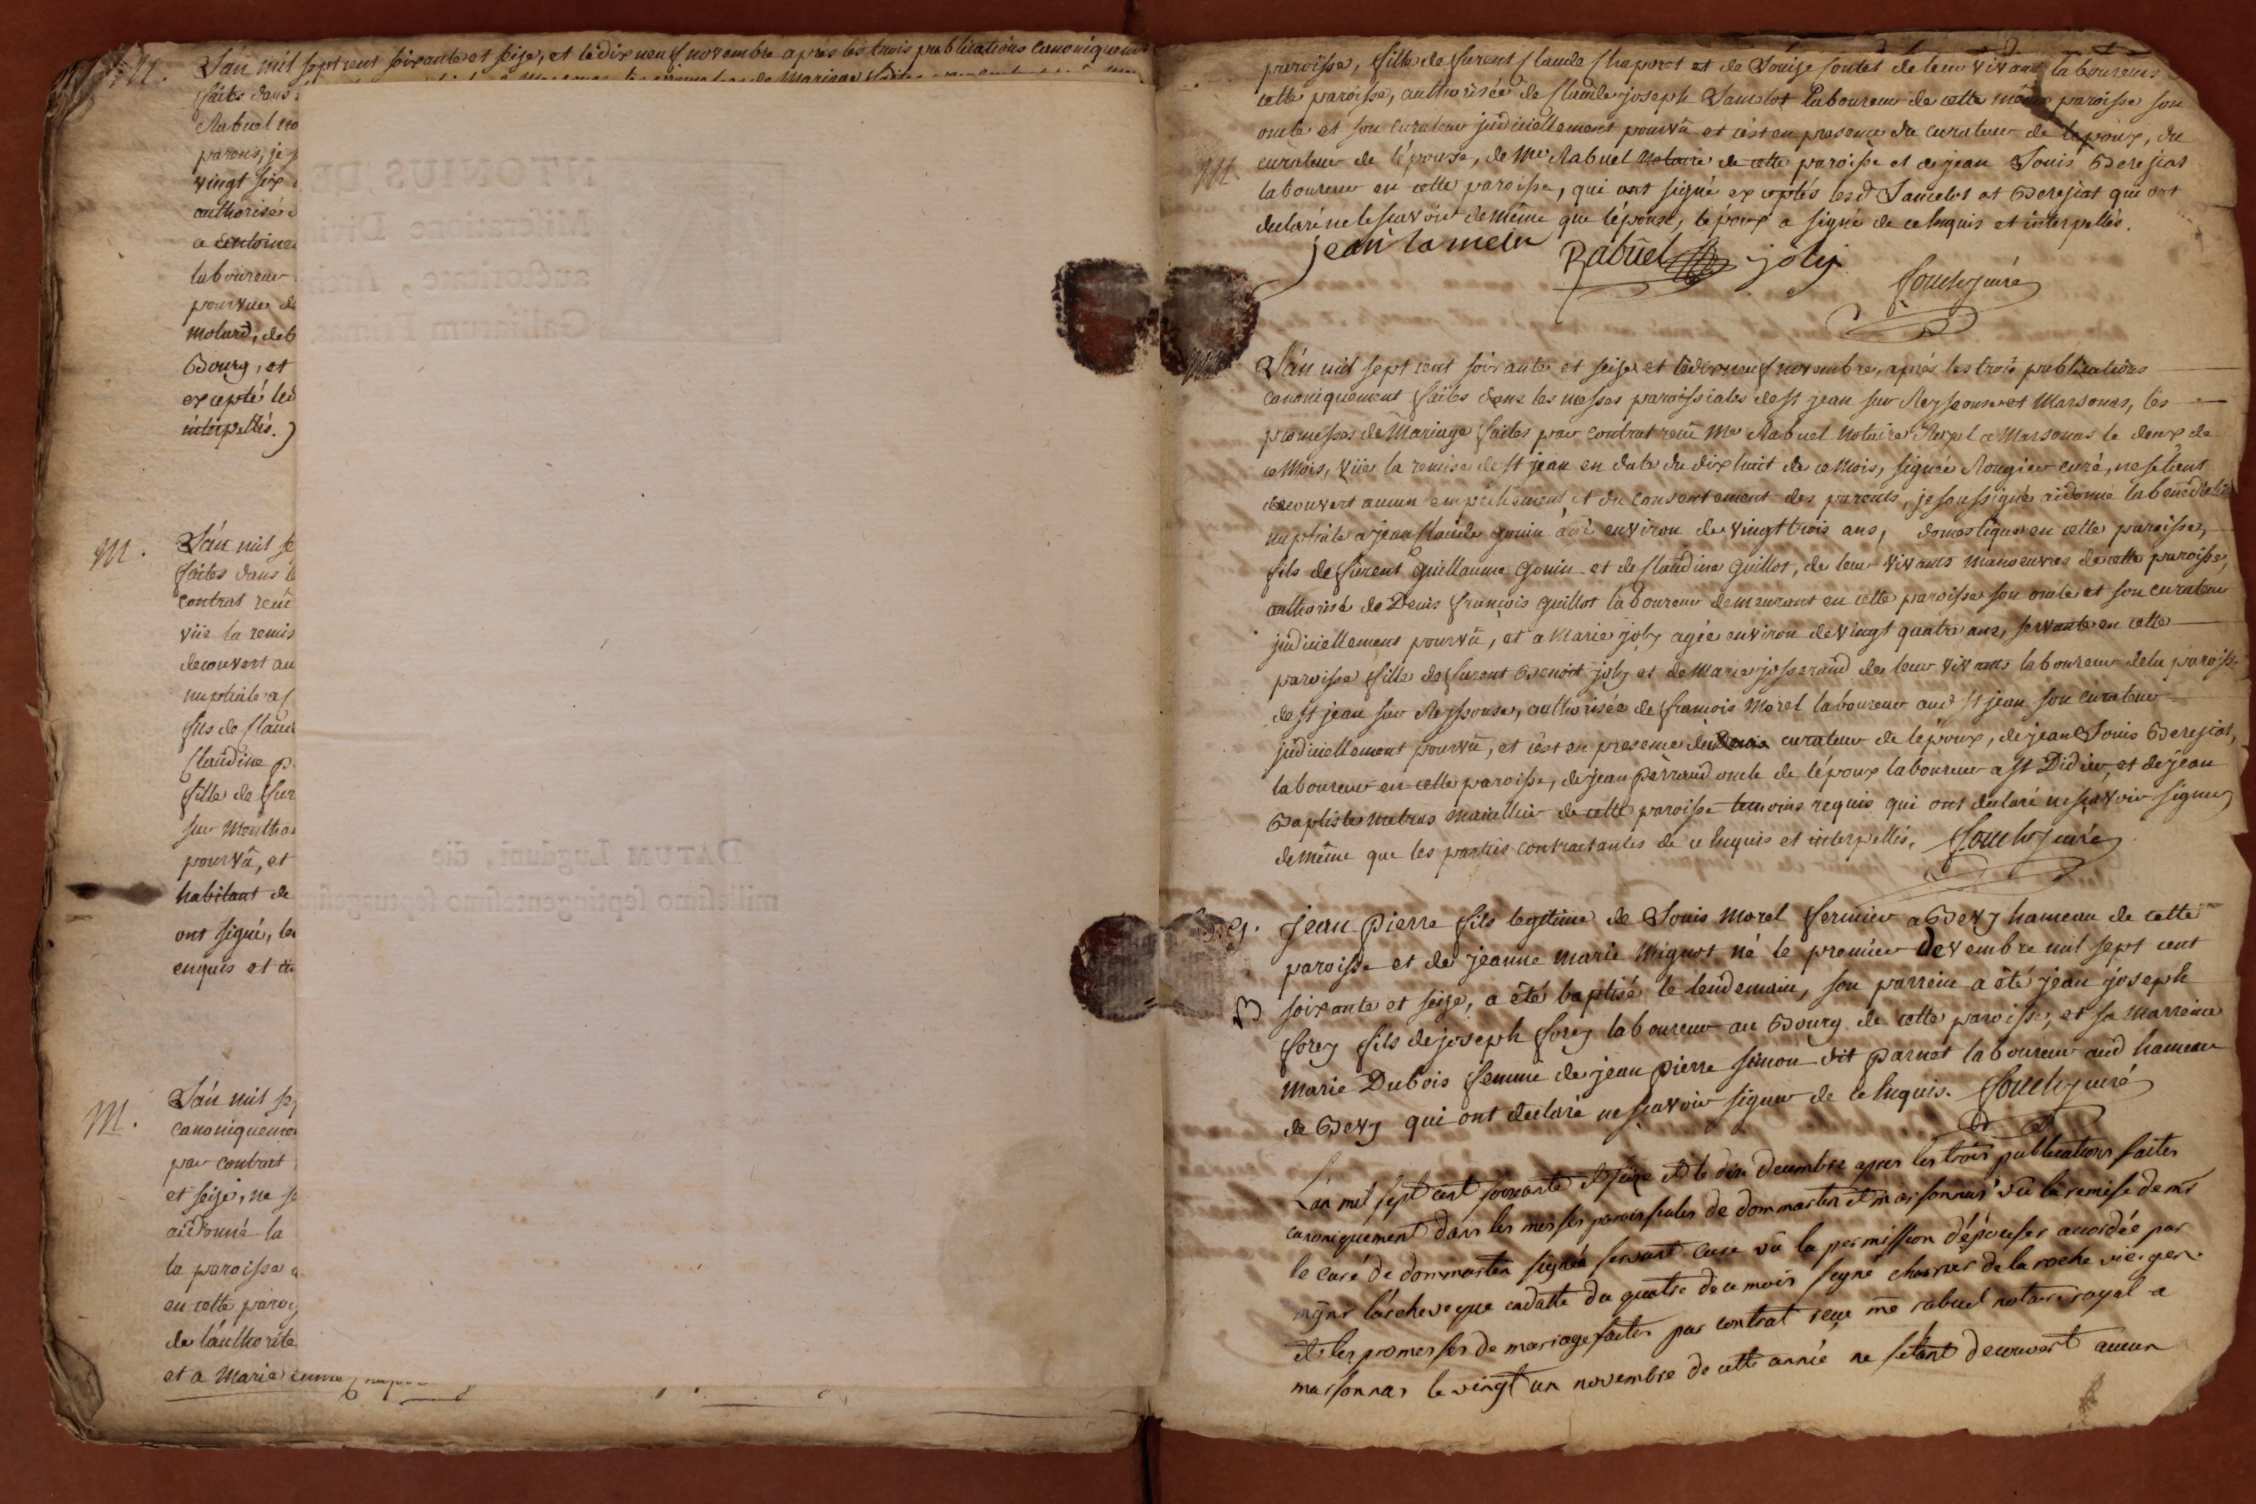 M. L'an mil sept cent soixante et seize, et le dix neuf novembre apres les trois publications canoniquement
faites dans
Rabuel no
parens, je
vingt six
authorisé
a antoine
laboureur
pourvue de
Molard, de
Bourg, et
excepté les
interpellés.
M. L'an mil se
faites dans le
contrat reçu
vüe la remis
decouvert au
nuptiale a
fils de Claud
Claudine p
fille de fur
sur Montha
pourvû, et
habitant de
ont signé, les
enquis et
M. L'an mil sep
canoniquemen
par contrat
et seize, ne s
ai donné la
la paroisse
en cette paroi
de l'authorité
et a Marie
paroisse, fille de furent Claude Chaperot et de Louise Contet de leur vivant laboureurs
cette paroisse, authorisée de Claude joseph Lancelot laboureur de cette même paroisse son
oncle et son curateur judiciellement pourvû et c'est en presence du curateur de l'epoux, du
M. curateur de l'épouse, de Me Rabuel Notaire de cette paroisse et de jean Louis Bereziat
laboureur en cette paroisse, qui ont signé exceptés lesd Lancelot et Bereziat qui ont
declaré ne le sçavoir de même que l'épouse, l'epoux a signé de ce Enquis et interpellés.
jean lamein Rabuel joly
curé
L'an mil sept cent soixante et seize et le dix neuf novembre, aprés les trois publications
canoniquement faites dans les messes paroissiales de st jean sur Reyssouse et Marsonas, les
promesses de Mariage faites par contrat reçu Me Rabuel Notaire Royal a Marsonas le deux de
ce Mois, vüe la remise de st jean en date du dix huit de ce Mois, signée Rougier curé, ne s'étant
decouvert aucun empêchement et du consentement des parents, je soussigné ai donné la bénédiction
nuptiale a jean Claude gonin âgé environ de vingt trois ans, domestique en cette paroisse,
fils de furent guillaume gonin et de Claudine guillot, de leur vivants manoeuvres de cette paroisse,
authorisé de Denis françois guillot laboureur demeurant en cette paroisse son oncle et son curateur
judiciellement pourvû, et a Marie joly agée environ de vingt quatre ans, servante en cette
paroisse fille de furent Benoit joly et de Marie josserand de leur vivants laboureur de la paroisse
de st jean sur Reyssouse, authorisée de françois Morel laboureur aud st jean son curateur
judiciellement pourvû, et c'est en presence dud curateur de l'epoux, de jean Louis Bereziat,
laboureur en cette paroisse, de jean perraud oncle de l'époux laboureur a st Didier, et de jean
Baptiste metras de cette paroisse temoins requis qui ont declaré ne sçavoir signer
de même que les parties contractantes de ce Enquis et interpellés. curé
jean pierre fils legitime de Louis Morel fermier a Bevy hameau de cette
paroisse et de jeanne marie Mignot né le premier decembre mil sept cent
B soixante et seize, a été baptisé le lendemain, son parrein a été jean joseph
forey fils de joseph forey laboureur au Bourg de cette paroisse, et sa marreine
Marie Dubois femme de jean pierre simon dit parnet laboureur aud hameau
de Bevy qui ont declaré ne sçavoir signer de ce Enquis. curé
L'an mil sept cent soixante et seize et le dix decembre apres les trois publications faites
canoniquement dans les messes paroissiales de dommartin et marsonnas vû la remise de mr
le curé de dommartin signée servant curé vû la permission d'épouser accordée par
mgnr l'archeveque en datte du quatre de ce mois signé de la roche vic. gen.
et les promesses de mariage faites par contrat reçu me rabuel notaire royal a
marsonnas le vingt un novembre de cette année ne s'etant decouvert aucun